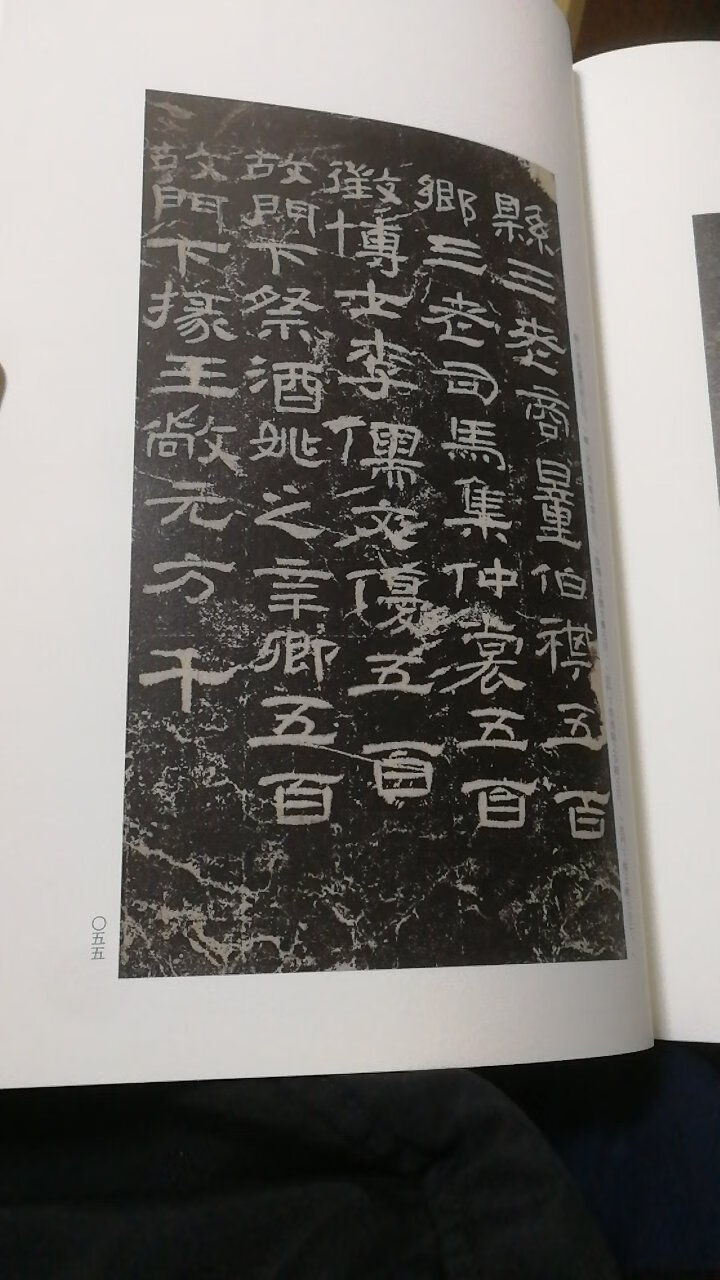 縣三老商量伯祺五百
鄉三老司馬集仲裳五百
徵博士李儒文優五百
故門下祭酒姚之辛卿五百
故門下掾王敞元方千
〇五五